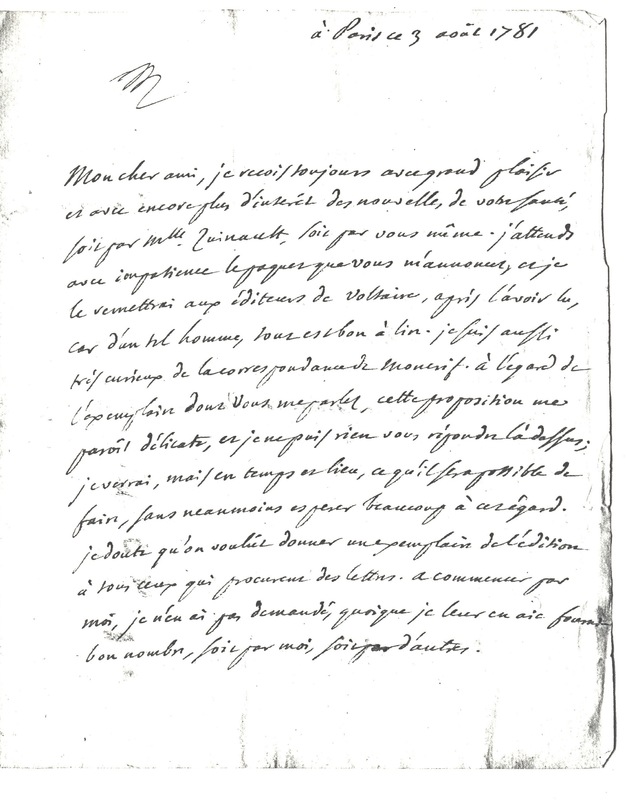 à Paris ce 3 août 1781
Mon cher ami, je reçois toujours avec grand plaisir
et avec encore plus d'interêt des nouvelles, de votre santé,
soit par Mlle. Quinault, soit par vous même. j'attends
avec impatience le paquet que vous m'annoncez, et je
le remettrai aux éditeurs de Voltaire, après l'avoir lu,
car d'un tel homme, tout est bon à lire. je suis aussi
très curieux de la correspondance de Moncrif. à l'égard de
l'exemplaire dont vous me parlez, cette proposition me
paroît délicate, et je ne puis rien vous répondre là dessus;
je verrai, mais en temps et lieu, ce qu'il sera possible de
faire, sans neanmoins esperer beaucoup à cet égard.
je doute qu'on voulût donner un exemplaire de l'édition
à tous ceux qui procurent des lettres. a commencer par
moi, je n'en ai pas demandé, quoique je leur en aie fourni
bon nombre, soit par moi, soit par d'autres.